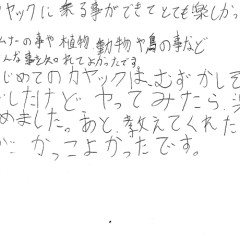 ヤックに乗る事ができてとても楽しかっ
ムナーの事や植物、動物や鳥の事など
んな事を知れてよかったです。
じめてのカヤックは、むずかしそ
でしたけど、やってみたら、
めました。あと、教えてくれた
が、かっこよかったです。